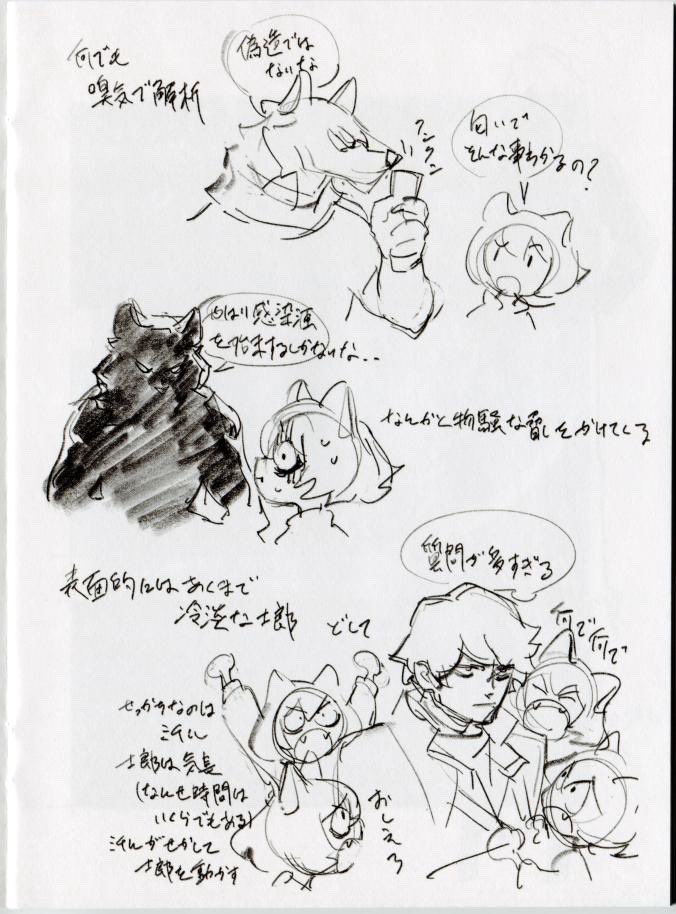 何でも
嗅気で解析
偽造では
ないな
クンクン
匂いで
そんな事わかるの?
やはり感染源
を始末するしかないな..
なんかと物騒な脅しをかけてくる
質問が多すぎる
表面的にはあくまで
冷淡な士郎
どして
何で何で
せっかちなのは
みちる
士郎は気長
(なんせ時間は
いくらでもある)
みちるがせかして
士郎を動かす
おしえろ